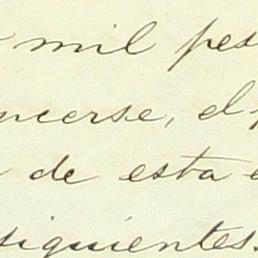 mil pes
ncerse, el
de esta
siguientes.